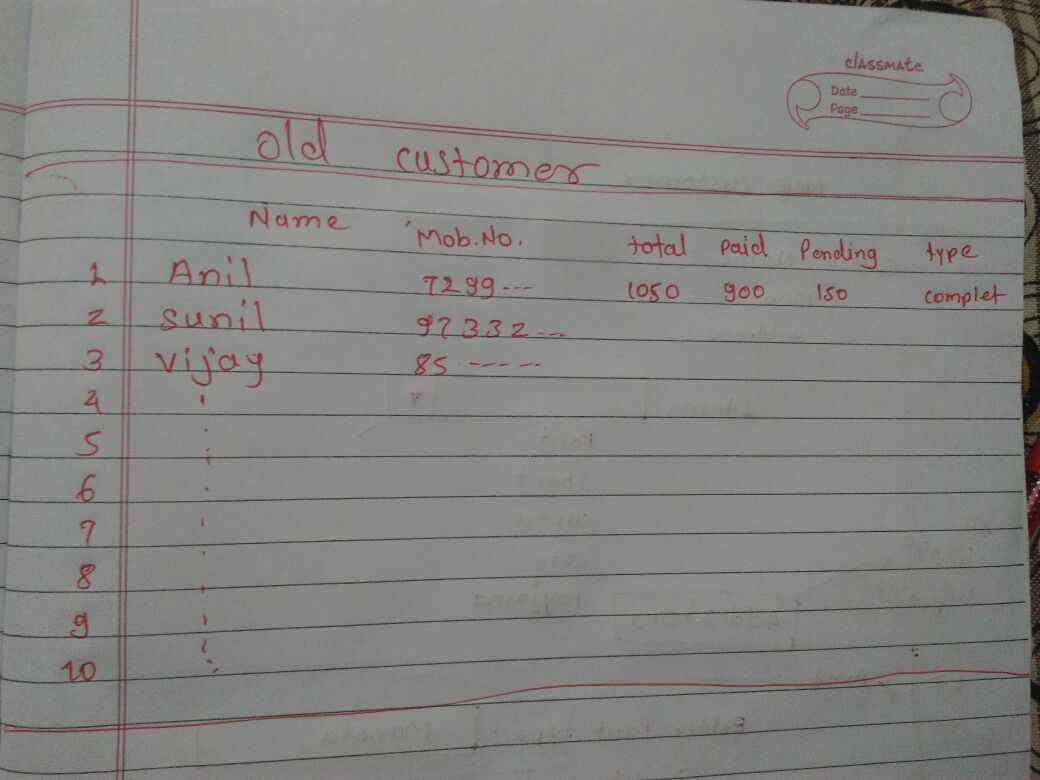 classmate
Date
Page
old customer
Name Mob.No. total Paid Pending type
1 Anil 7299--- 1050 900 150 complet
2 sunil 97332---
3 vijay 85-----
4
5
6
7
8
9
10